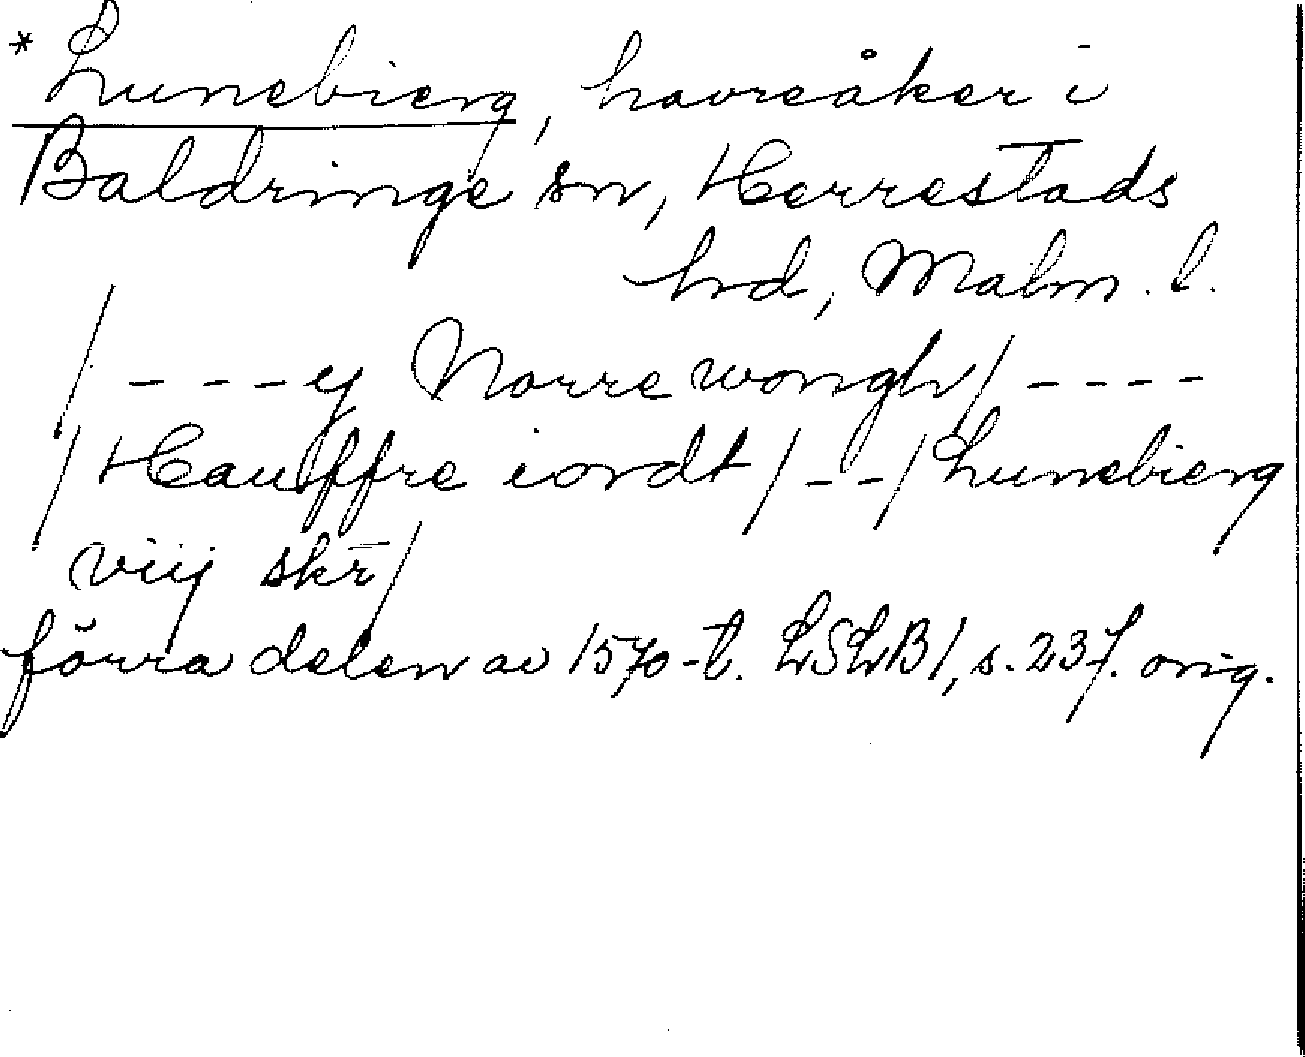 * Lunebierg, havreåker i
Baldringe sn, Herrestads
hrd, Malm. l.
/ - - - ej Norre wongh / - - - -
/ Hauffre iordt / - - / Lunebierg
viij skr̄ /
förra delen av 1570-t. LSLB 1, s. 237. orig.